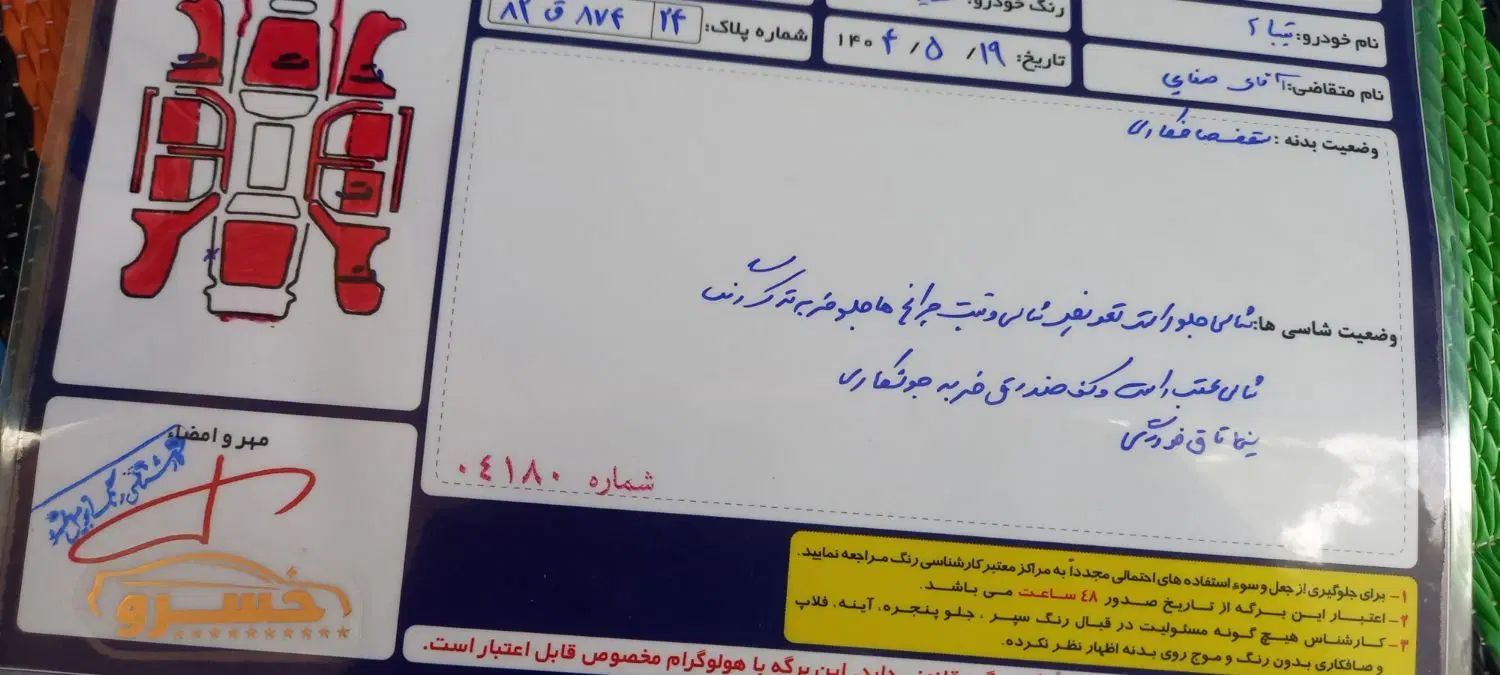 نام خودرو: تیبا ۲
رنگ خودرو:
شماره پلاک: ۲۴ ۸۷۴ ق ۸۲
تاریخ: ۱۴۰۴/۵/۱۹
نام متقاضی: آقای صفایی
وضعیت بدنه: سقف صافکاری
وضعیت شاسی ها: شاسی جلو راست تعویض شاسی و تیت چراغ ها جلو ضربه ترک رنگ
شاسی عقب راست و کف صندوق ضربه جوشکاری
شماره ۰۴۱۸۰
مهر و امضاء
خسرو
۱- برای جلوگیری از جعل و سوء استفاده های احتمالی مجدداً به مراکز معتبر کارشناسی رنگ مراجعه نمایید.
۲- اعتبار این برگه از تاریخ صدور ۴۸ ساعت می باشد.
۳- کارشناس هیچ گونه مسئولیت در قبال رنگ سپر ، جلو پنجره، آینه، فلاپ
و صافکاری بدون رنگ و موج روی بدنه اظهار نظر نکرده.
ندارد. این برگه با هولوگرام مخصوص قابل اعتبار است.